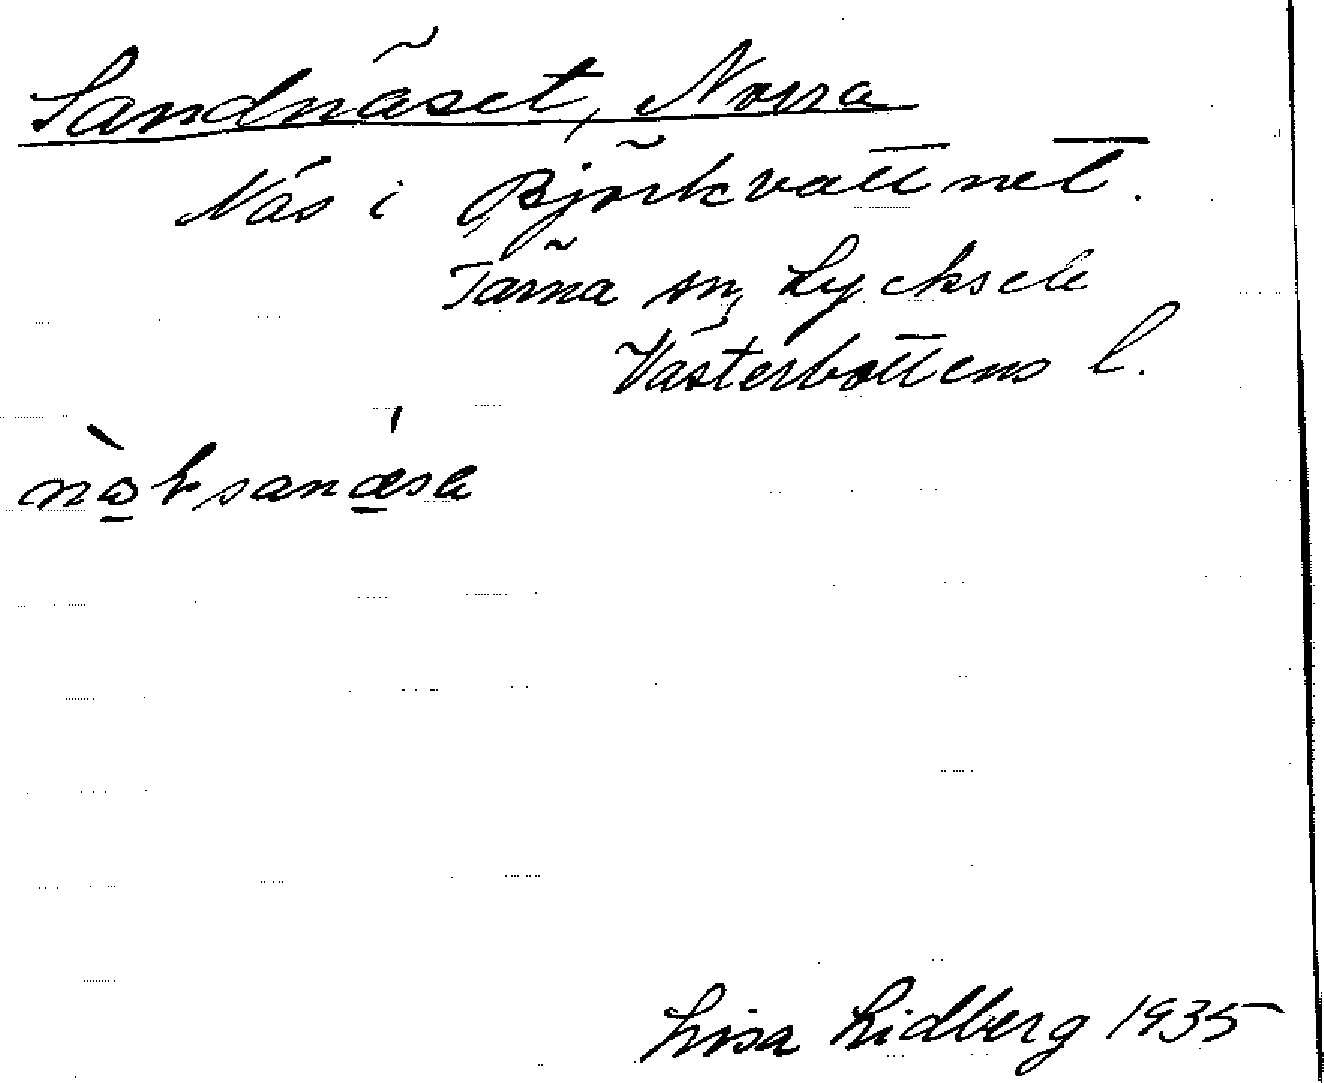 Sandnäset, Norra
Näs i Björkvattnet.
Tärna sn, Lycksele
Västerbottens l.
Lisa Lidberg 1935